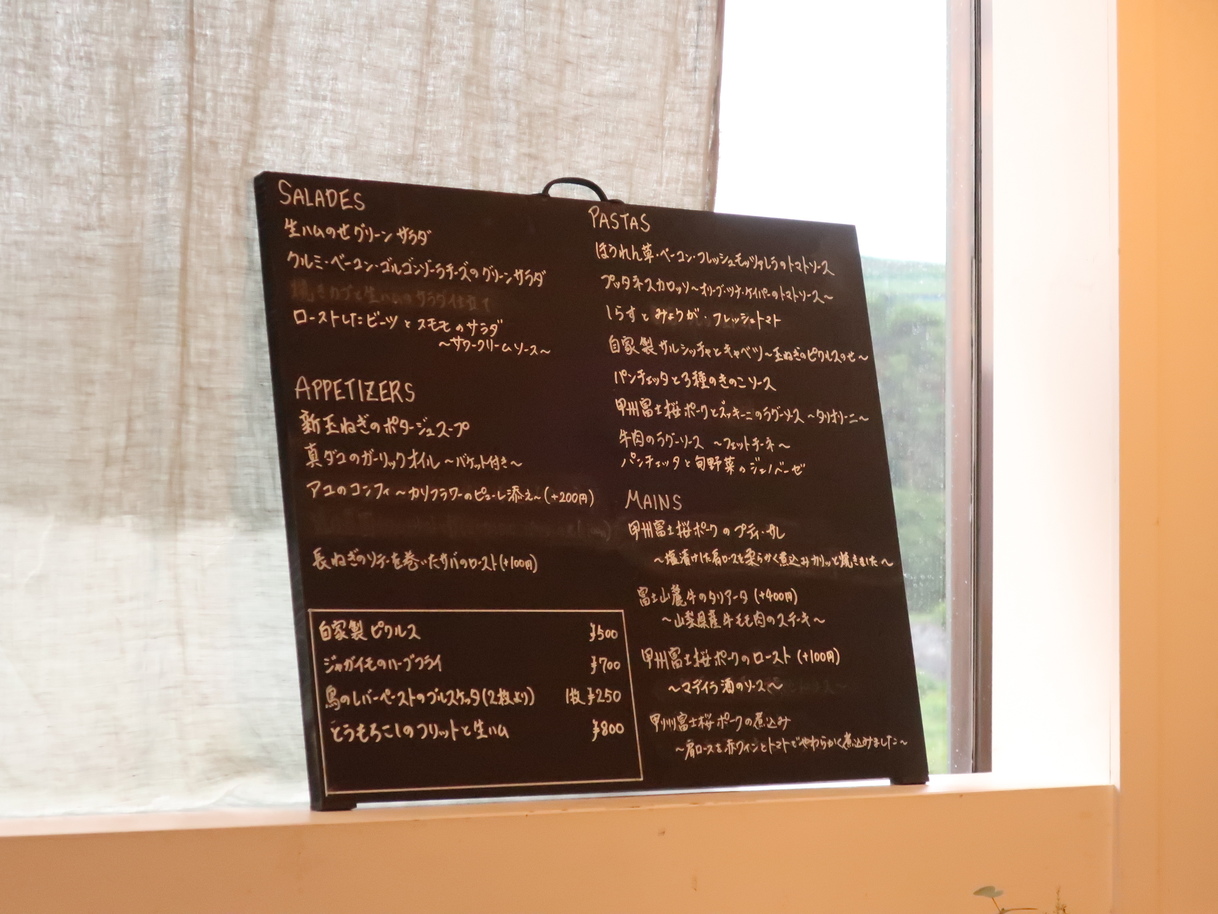 SALADES
生ハムのせグリーンサラダ
クルミ・ベーコン・ゴルゴンゾーラチーズのグリーンサラダ
ローストしたビーツとスモモのサラダ
～サワークリームソース～
APPETIZERS
新玉ねぎのポタージュスープ
真ダコのガーリックオイル ～バケット付き～
アユのコンフィ ～カリフラワーのピューレ添え～ (+200円)
長ねぎのソテーを巻いたサバのロースト (+100円)
自家製ピクルス ¥500
ジャガイモのハーブフライ ¥700
鳥のレバーペーストのブルスケッタ(2枚より) 1枚 ¥250
とうもろこしのフリットと生ハム ¥800
PASTAS
ほうれん草・ベーコン・フレッシュモッツァレラのトマトソース
プッタネスカロッソ～オリーブ・ツナ・ケイパーのトマトソース～
しらすとみょうが・フレッシュトマト
自家製サルシッチャとキャベツ～玉ねぎのピクルスのせ～
パンチェッタと3種のきのこソース
甲州富士桜ポークとズッキーニのラグーソース ～タリオリーニ～
牛肉のラグーソース ～フェットチーネ～
パンチェッタと旬野菜のジェノベーゼ
MAINS
甲州富士桜ポークのプティ・サレ
～塩漬けした肩ロースを柔らかく煮込みカリッと焼きました～
富士山麓牛のタリアータ (+400円)
～山梨県産牛もも肉のステーキ～
甲州富士桜ポークのロースト (+100円)
～マデイラ酒のソース～
甲州富士桜ポークの煮込み
～肩ロースを赤ワインとトマトでやわらかく煮込みました～